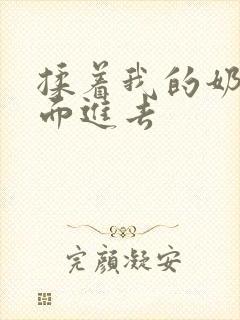 揉着我的奶
而进去
完颜凝安